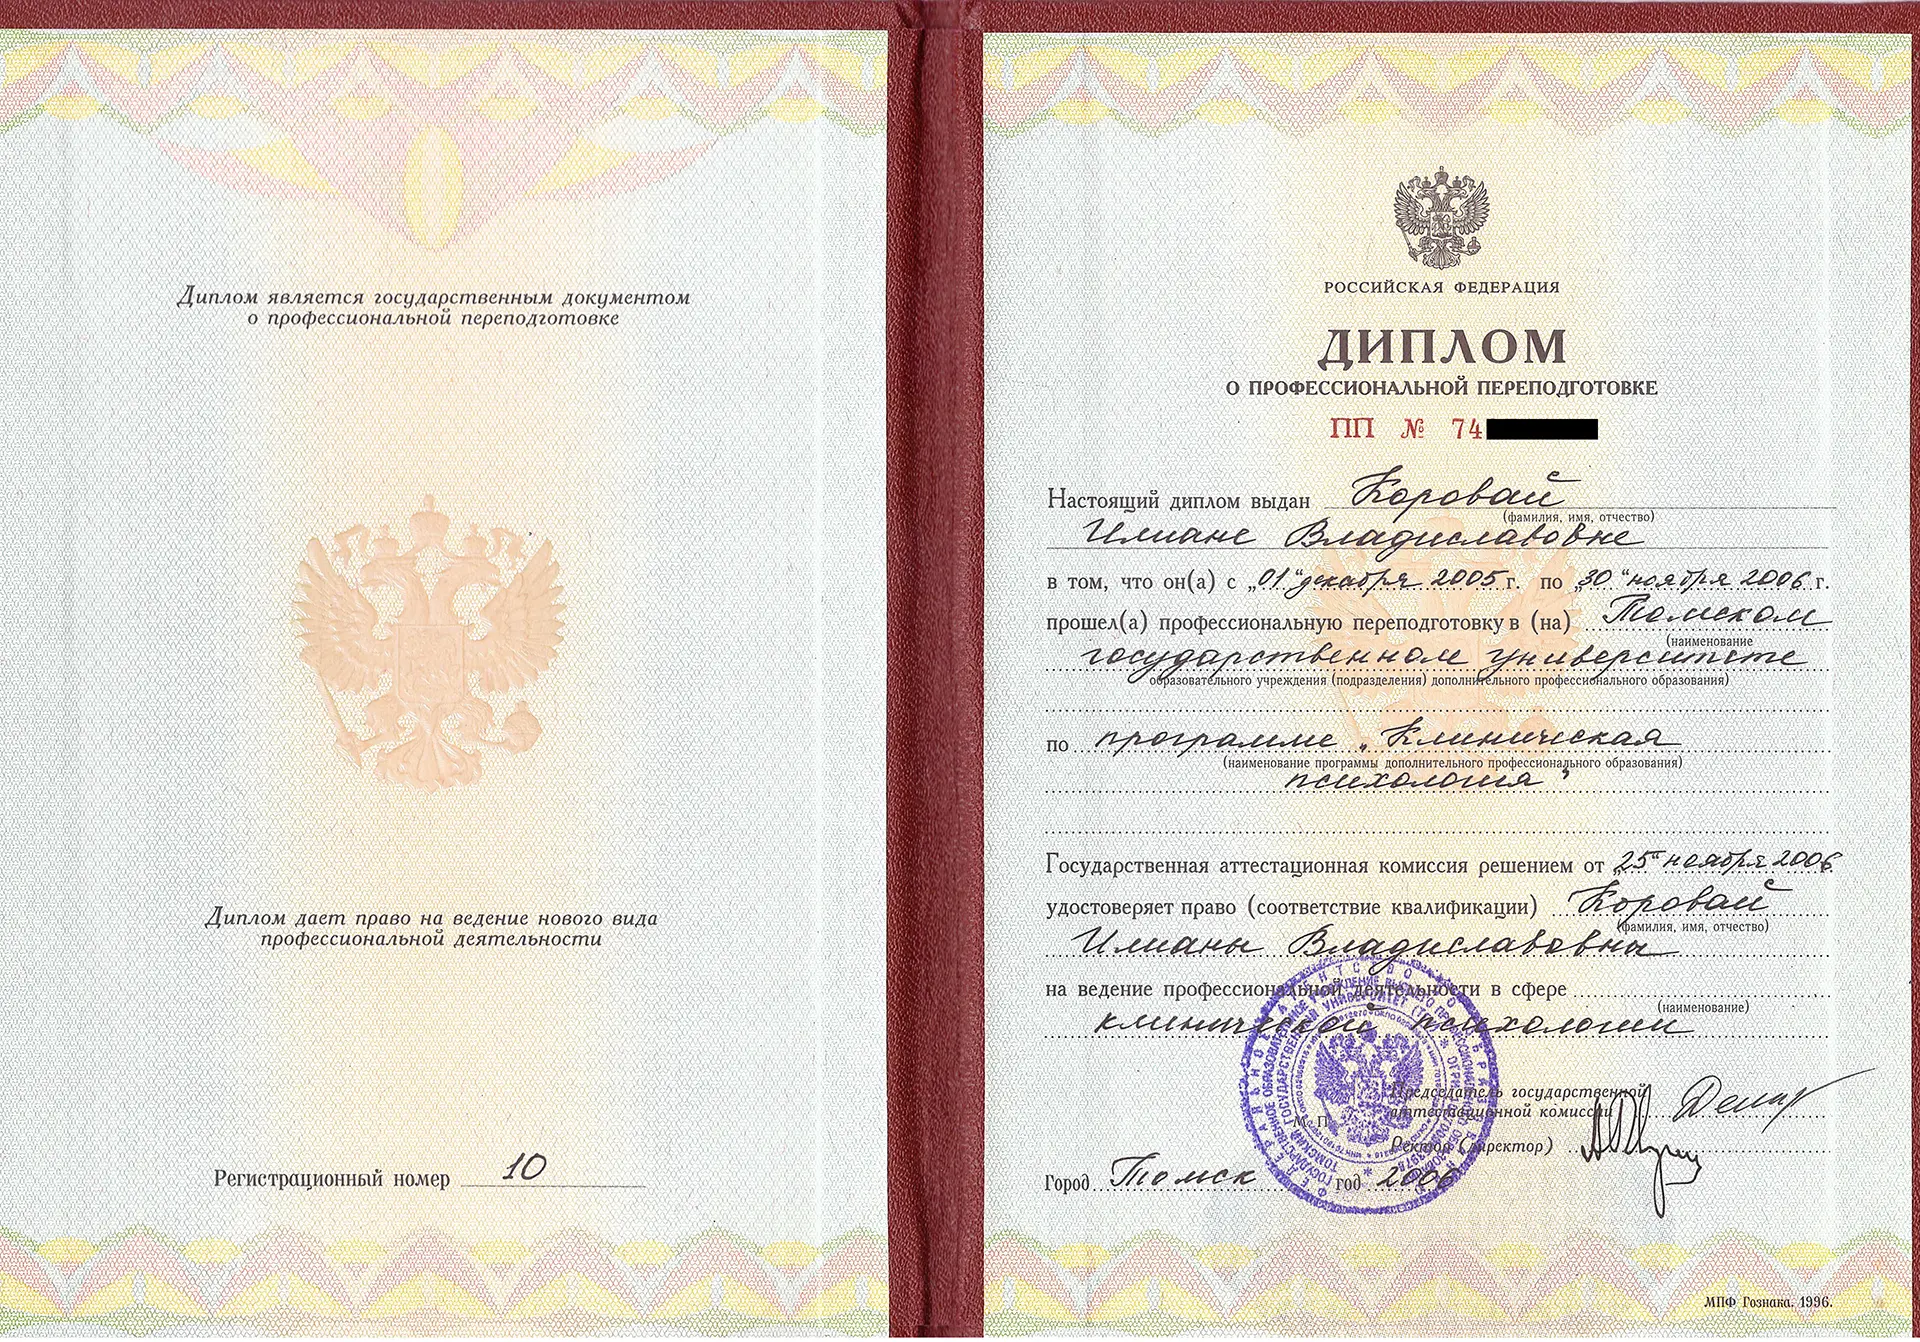 Диплом является государственным документом
о профессиональной переподготовке
Диплом дает право на ведение нового вида
профессиональной деятельности
Регистрационный номер 10
РОССИЙСКАЯ ФЕДЕРАЦИЯ
ДИПЛОМ
О ПРОФЕССИОНАЛЬНОЙ ПЕРЕПОДГОТОВКЕ
ПП № 74
Настоящий диплом выдан Коровай
(фамилия, имя, отчество)
Илиане Владиславовне
в том, что он(а) с „01“ декабря 2005 г. по „30“ ноября 2006 г.
прошел(а) профессиональную переподготовку в (на) Томском
(наименование
государственном университете
образовательного учреждения (подразделения) дополнительного профессионального образования)
по программе „Клиническая
(наименование программы дополнительного профессионального образования)
психология“
Государственная аттестационная комиссия решением от „25“ ноября 2006
удостоверяет право (соответствие квалификации) Коровай
(фамилия, имя, отчество)
Илианы Владиславовны
на ведение профессиональной деятельности в сфере
(наименование)
клинической психологии
Председатель государственной
аттестационной комиссии
М. П.
Ректор (директор)
Город Томск год 2006
МПФ Гознака. 1996.